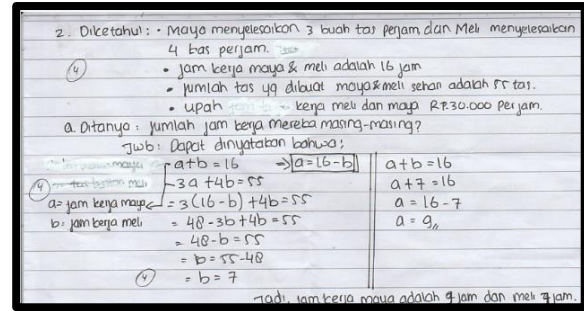 2. Diketahui : • Maya menyelesaikan 3 buah tas perjam dan Meli menyelesaikan
4 tas perjam.
4
• Jam kerja maya & meli adalah 16 jam
• Jumlah tas yg dibuat maya & meli sehari adalah 55 tas.
• upah kerja meli dan maya RP.30.000 per jam.
a. Ditanya : Jumlah jam kerja mereka masing-masing?
Jwb : Dapat dinyatakan bahwa ;
a+b = 16 → a=16-b
4
3a + 4b = 55
a= jam kerja maya = 3(16-b) + 4b = 55
b= jam kerja meli = 48 - 3b + 4b = 55
= 48 - b = 55
= b = 55 - 48
4
= b = 7
a + b = 16
a + 7 = 16
a = 16 - 7
a = 9,,
Jadi, jam kerja maya adalah 9 jam dan meli 7 jam.